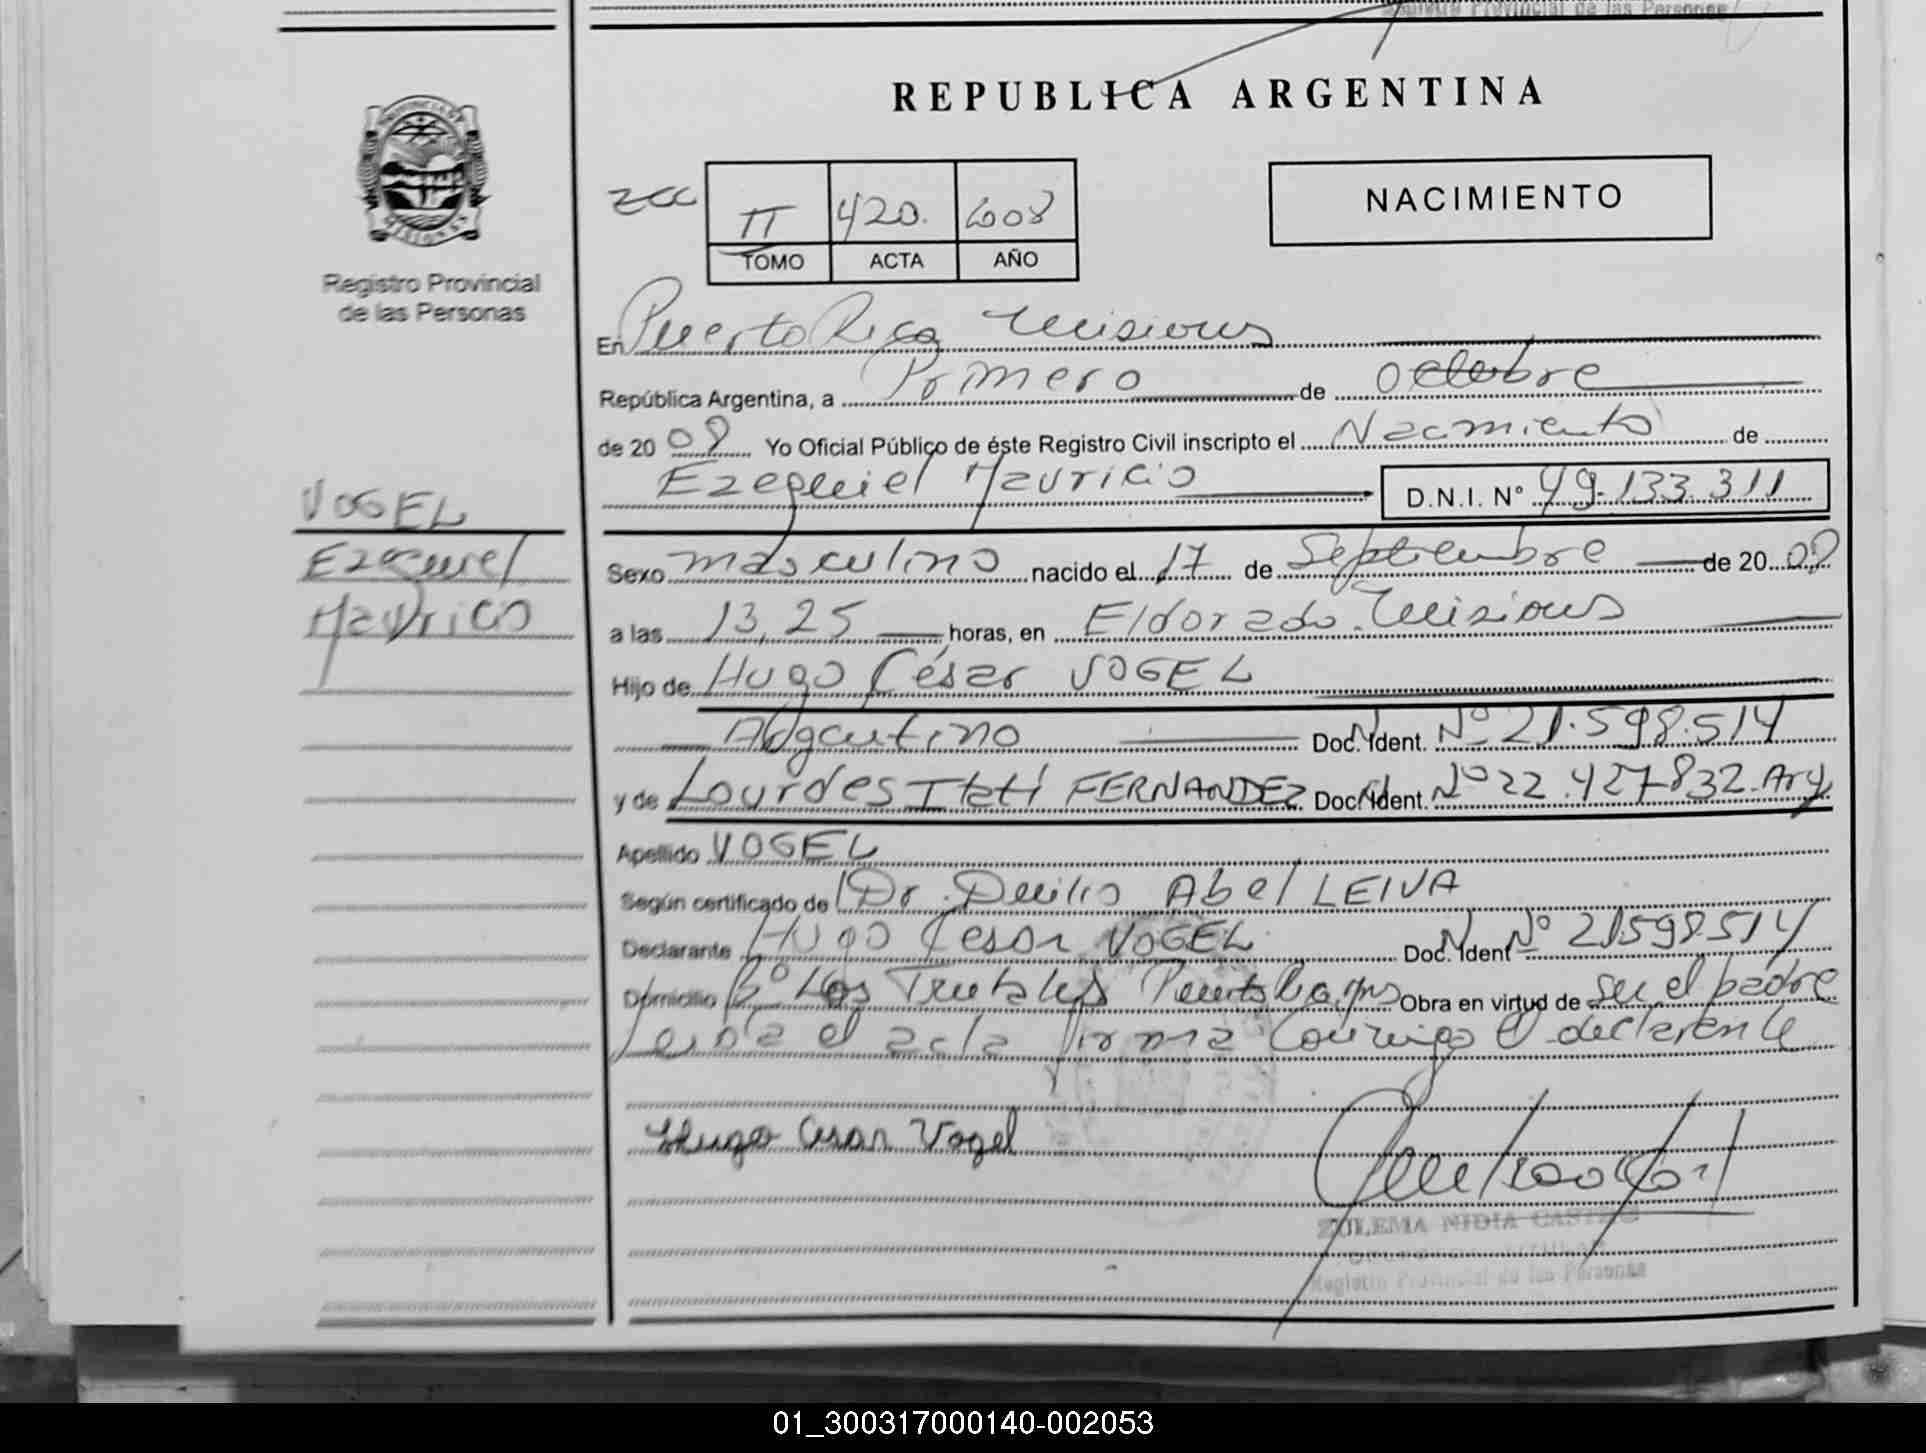 Registro Provincial de las Personas
REPUBLICA ARGENTINA
PROVINCIA DE
MISIONES
Registro Provincial
de las Personas
II 420. 2008
TOMO ACTA AÑO
NACIMIENTO
En Puerto Rico Misiones
República Argentina, a Primero de octubre
de 20 08 Yo Oficial Público de éste Registro Civil inscripto el Nacimiento de
Ezequiel Mauricio D.N.I. N° 49.133.311
VOGEL
Ezequiel
Mauricio
Sexo masculino nacido el 17 de Septiembre de 20 08
a las 13,25 horas, en Eldorado. Misiones
Hijo de Hugo César VOGEL
Argentino Doc. Ident. N° 21.598.514
y de Lourdes Itatí FERNANDEZ Doc. Ident. N° 22.427.832. Arg
Apellido VOGEL
Según certificado de Dr. Duilio Abel LEIVA
Declarante Hugo Cesar VOGEL Doc. Ident N° 21598514
Domicilio B° Los Puerto Obra en virtud de ser el padre
Leida el acta firma conmigo el declarante
Hugo Cesar Vogel
ZULEMA NIDIA CASTRO
Registro Provincial de las Personas
01_300317000140-002053